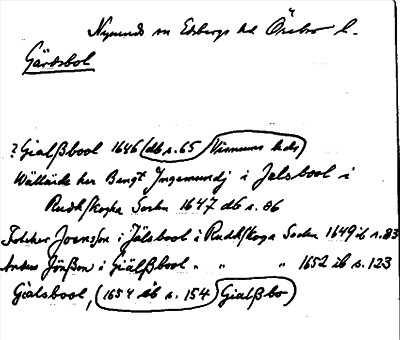 Nysunds sn Edsbergs hd Örebro l.
Gärdsbol
? Gialßbool 1646 (db s. 65) (Visnums hds)
Wälläide her Bengt Ingemundj i Jalsbool i
Rudhskoga Sochn 1647 db s. 86
Joensson i Jälsbool i Rudhskoga Sochn 1649 ib s. 83
Anders Jönßon i Giälßbool " " " 1652 ib s. 123
Gialsbool, (1654 ib s. 154) Gialßbo)